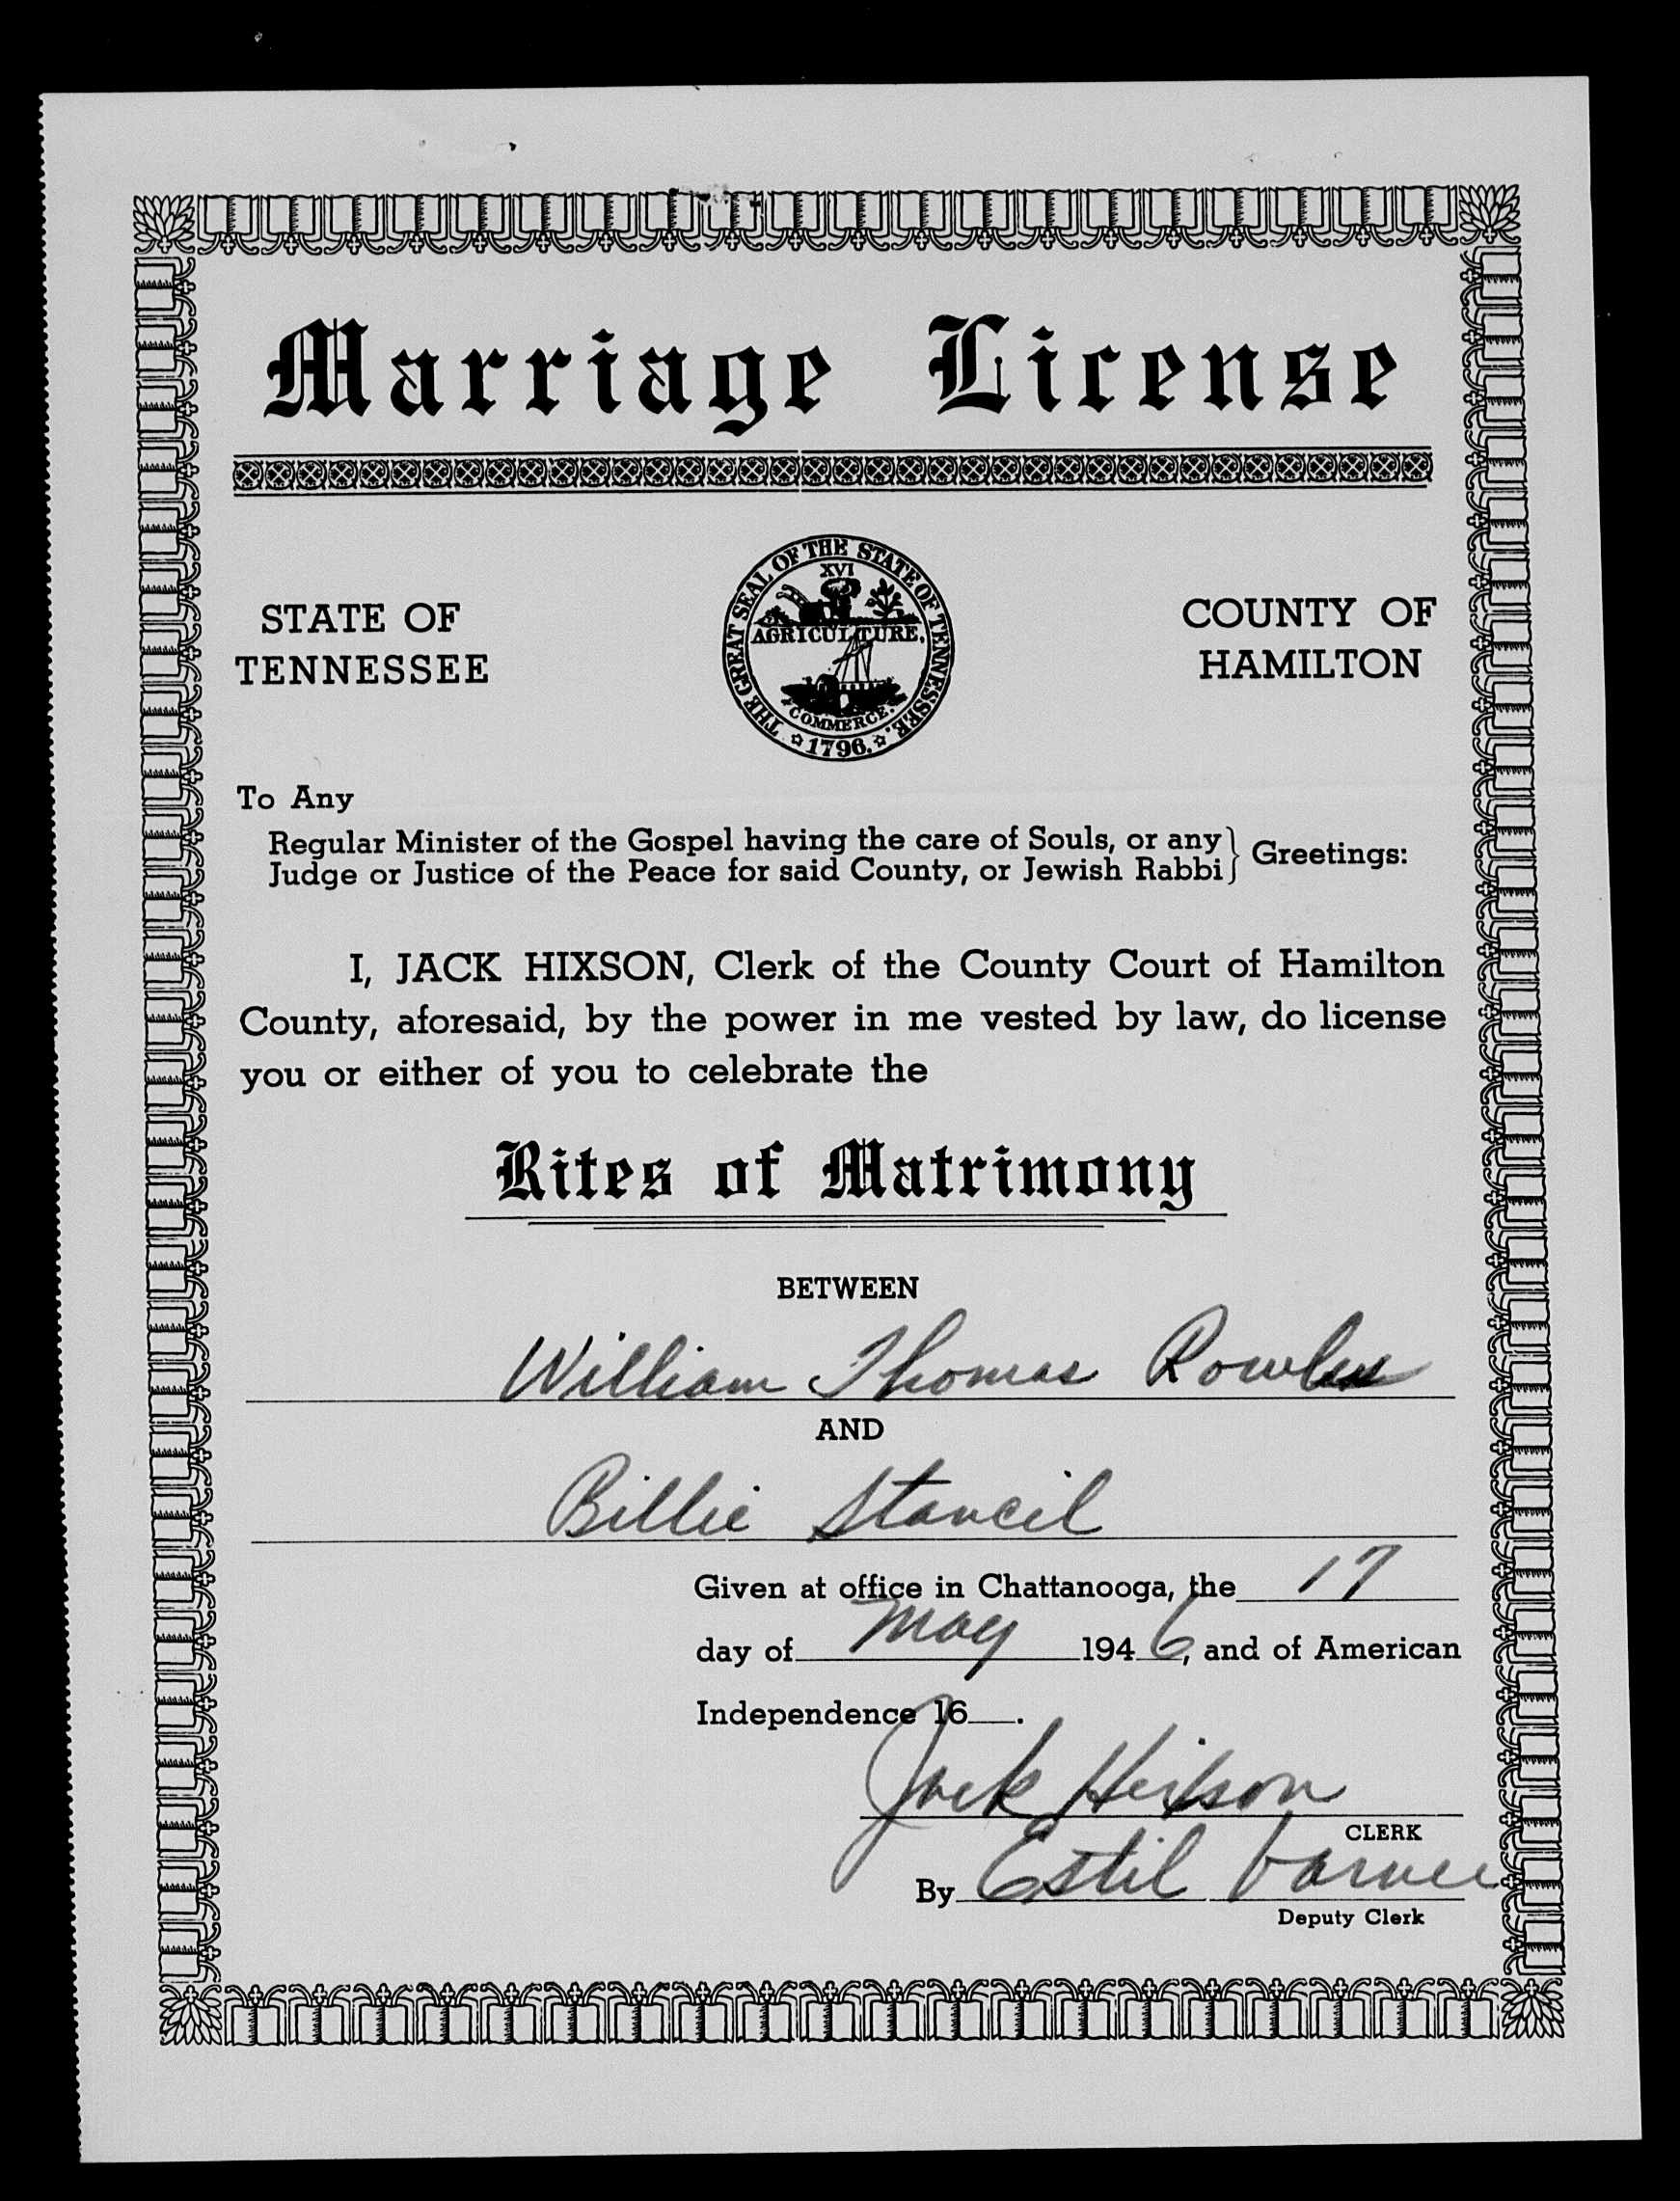 Marriage License
THE GREAT SEAL OF THE STATE OF TENNESSEE.
XVI
AGRICULTURE.
COMMERCE.
1796.
STATE OF
TENNESSEE
COUNTY OF
HAMILTON
To Any
Regular Minister of the Gospel having the care of Souls, or any
Judge or Justice of the Peace for said County, or Jewish Rabbi
} Greetings:
I, JACK HIXSON, Clerk of the County Court of Hamilton
County, aforesaid, by the power in me vested by law, do license
you or either of you to celebrate the
Rites of Matrimony
BETWEEN
William Thomas
AND
Billie Stancil
Given at office in Chattanooga, the 17
day of May 1946, and of American
Independence 16__.
Jack Hixson
CLERK
By Estil
Deputy Clerk